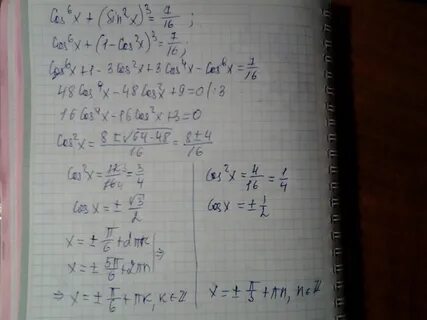 Cos⁶x + (Sin²x)³ = 7/16 ;
Cos⁶x + (1 - Cos²x)³ = 7/16
Cos⁶x + 1 - 3Cos²x + 3Cos⁴x - Cos⁶x = 7/16
48Cos⁴x - 48Cos²x + 9 = 0 /:3
16Cos⁴x - 16Cos²x + 3 = 0
Cos²x = (8 ± √64-48)/16 = (8 ± 4)/16
Cos²x = 12/16 = 3/4
Cos x = ± √3/2
x = ± π/6 + 2πk
x = ± 5π/6 + 2πn
⇒ x = ± π/6 + πk, k∈Z
Cos²x = 4/16 = 1/4
Cos x = ± 1/2
x = ± π/3 + πn, n∈Z